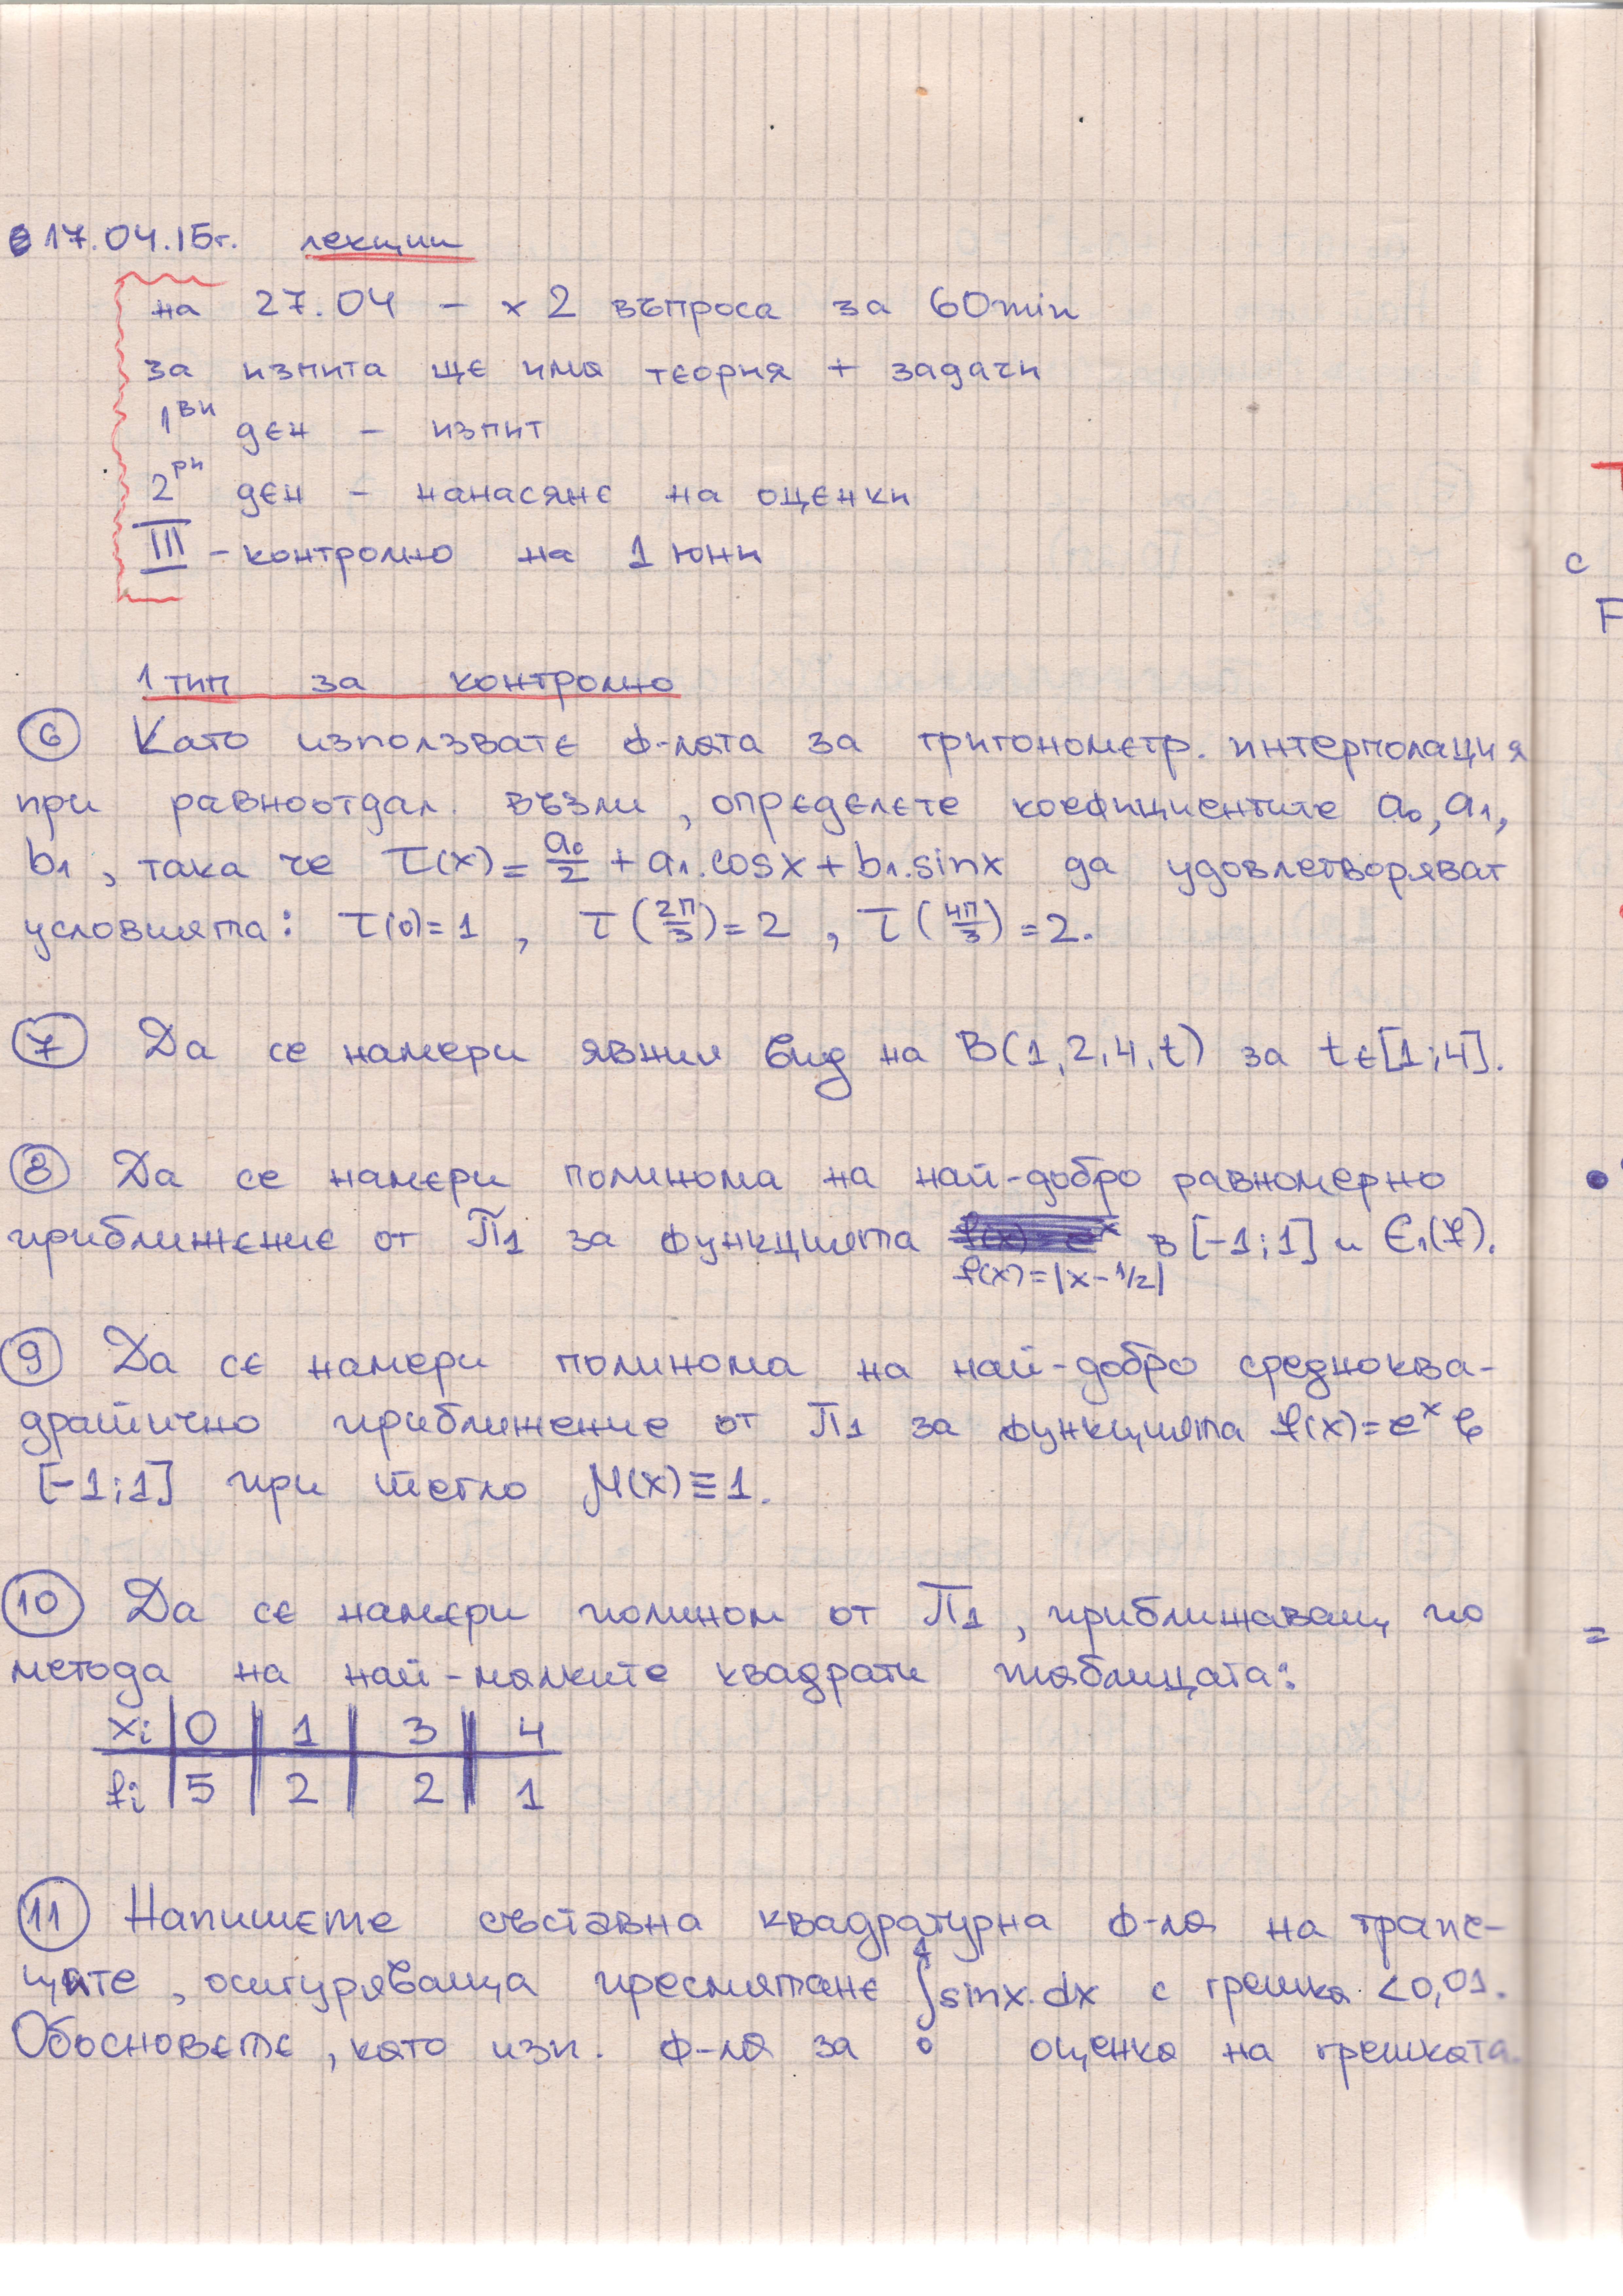 17.04.15г. лекции
на 27.04 - x 2 въпроса за 60min
за изпита ще има теория + задачи
1ви ден - изпит
2ри ден - нанасяне на оценки
III - контролно на 1 юни
1 тип за контролно
6 Като използвате ф-лата за тригонометр. интерполация
при равноотдал. възли, определете коефициентите a₀, a₁,
b₁, така че τ(x) = a₀/2 + a₁.cosx + b₁.sinx да удовлетворяват
условията: τ(0)=1, τ(2π/3)=2, τ(4π/3)=2.
7 Да се намери явния вид на B(1,2,4,t) за t∈[1;4].
8 Да се намери полинома на най-добро равномерно
приближение от П₁ за функцията в [-1;1] и E₁(f).
f(x)=|x-1/2|
9 Да се намери полинома на най-добро средноква-
дратично приближение от П₁ за функцията f(x)=eˣ в
[-1;1] при тегло μ(x)≡1.
10 Да се намери полином от П₁, приближаващ по
метода на най-малките квадрати таблицата:
xᵢ | 0 | 1 | 3 | 4
fᵢ | 5 | 2 | 2 | 1
11 Напишете съставна квадратурна ф-ла на трапе-
ците, осигуряваща пресмятане ∫₀¹ sinx.dx с грешка <0,01.
Обосновете, като изп. ф-ла за оценка на грешката.
с
F
=